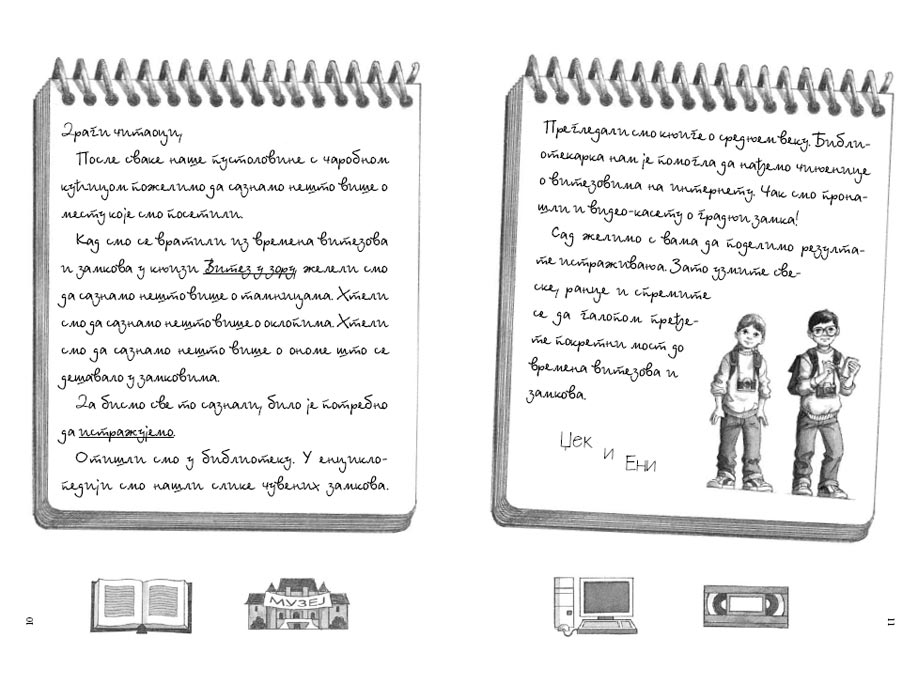 Драги читаоци,
После сваке наше пустоловине с чаробном
кућицом пожелимо да сазнамо нешто више о
месту које смо посетили.
Кад смо се вратили из времена витезова
и замкова у књизи Витез у зору, желели смо
да сазнамо нешто више о тамницама. Хтели
смо да сазнамо нешто више о оклопима. Хтели
смо да сазнамо нешто више о ономе што се
дешавало у замковима.
Да бисмо све то сазнали, било је потребно
да истражујемо.
Отишли смо у библиотеку. У енцикло-
педији смо нашли слике чувених замкова.
МУЗЕЈ
10
Прегледали смо књиге о средњем веку. Библи-
отекарка нам је помогла да нађемо чињенице
о витезовима на интернету. Чак смо прона-
шли и видео-касету о градњи замка!
Сад желимо с вама да поделимо резулта-
те истраживања. Зато узмите све-
ске, ранце и спремите
се да галопом пређе-
те покретни мост до
времена витезова и
замкова.
Џек
и
Ени
11